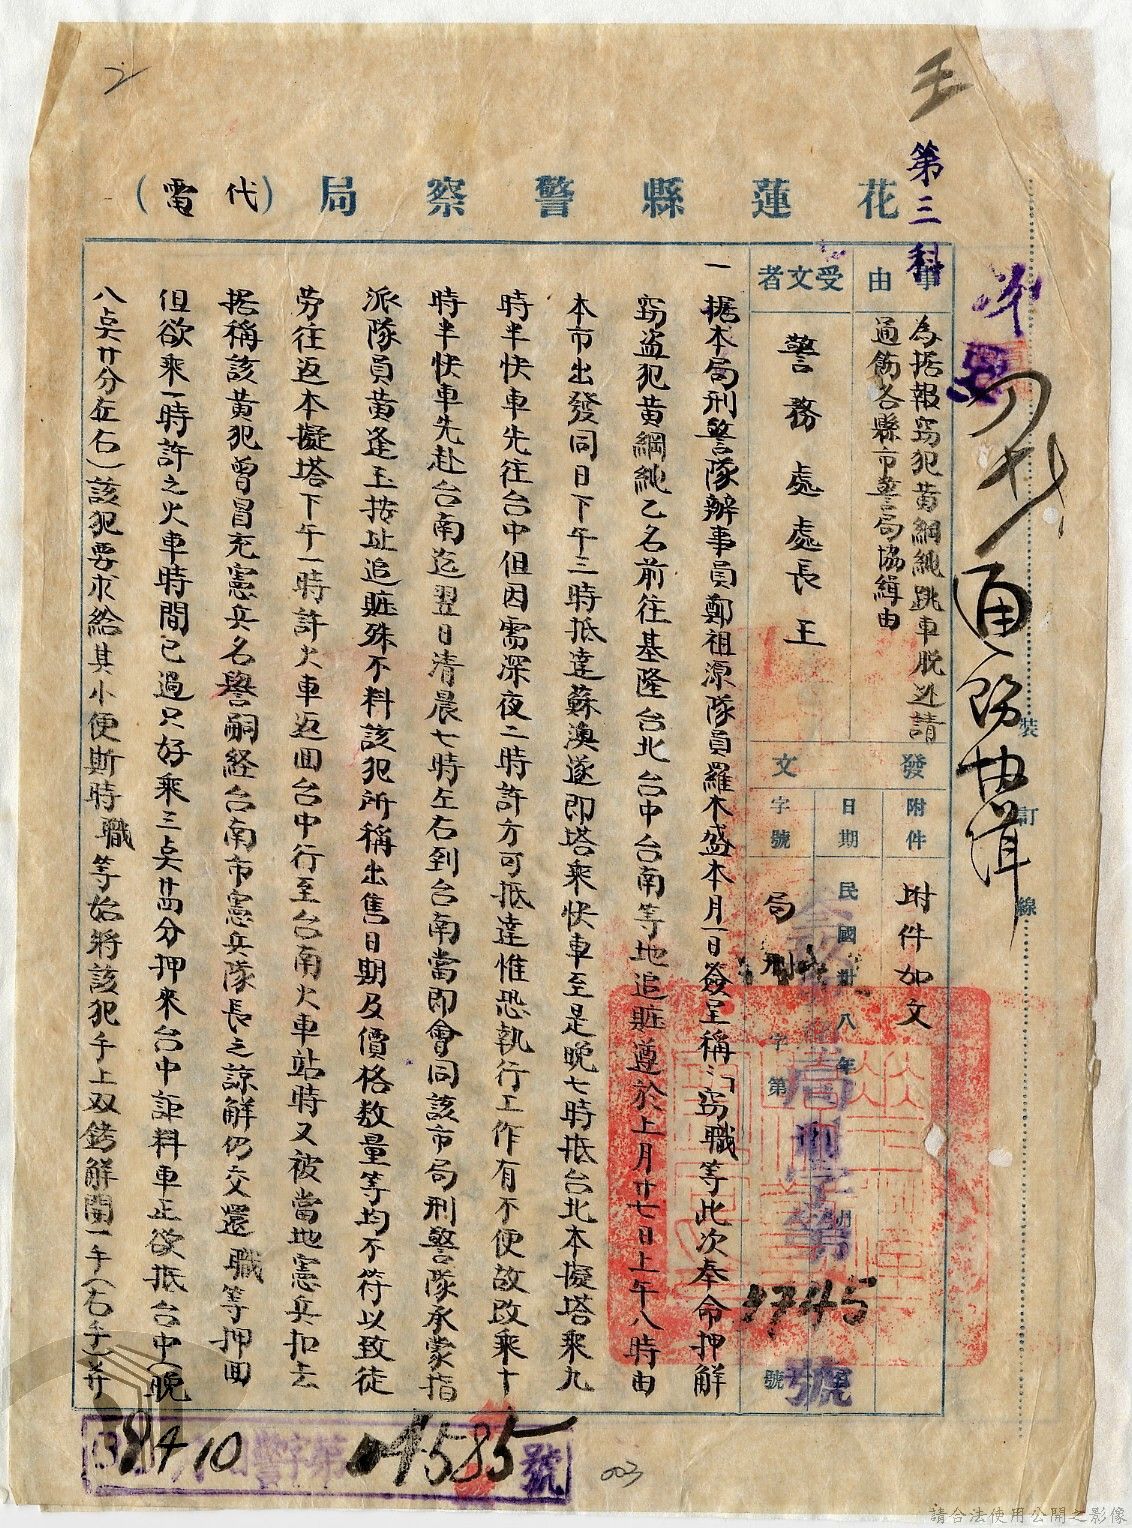 王
第三科
花蓮縣警察局(代電)
事由
為据報竊犯黃綱純跳車脫逃請
通飭各縣市警局協緝由
受文者
警務處處長王
發文
附件
附件如文
日期
民國卅八年
字號
局刑
字第
1745
號
一據本局刑警隊辦事員鄭祖源隊員羅木盛本月一日簽呈稱:「竊職等此次奉命押解
竊盜犯黃綱純乙名前往基隆台北台中台南等地追贓遵於上月廿七日上午八時由
本市出發同日下午三時抵達蘇澳遂即塔乘快車至是晚七時抵台北本擬塔乘九
時半快車先往台中但因需深夜二時許方可抵達惟恐執行工作有不便故改乘十
時半快車先赴台南迄翌日清晨七時左右到台南當即會同該市局刑警隊承蒙指
派隊員黃逢玉按址追贓殊不料該犯所稱出售日期及價格数量等均不符以致徒
劳往返本擬塔下午一時許火車返回台中行至台南火車站時又被當地憲兵扣去
据稱該黃犯曾冒充憲兵名譽嗣経台南市憲兵隊長之諒解仍交還職等押回
但欲乘一時許之火車時間已過只好乘三点廿四分押來台中詎料車正欲抵台中(晚
八点廿分左右)該犯要求給其小便斯時職等始將該犯手上双銬解開一手(右手)并
通飭協緝
裝
訂
線
38 4 10
警字第
04585
號
003
請合法使用公開之影像